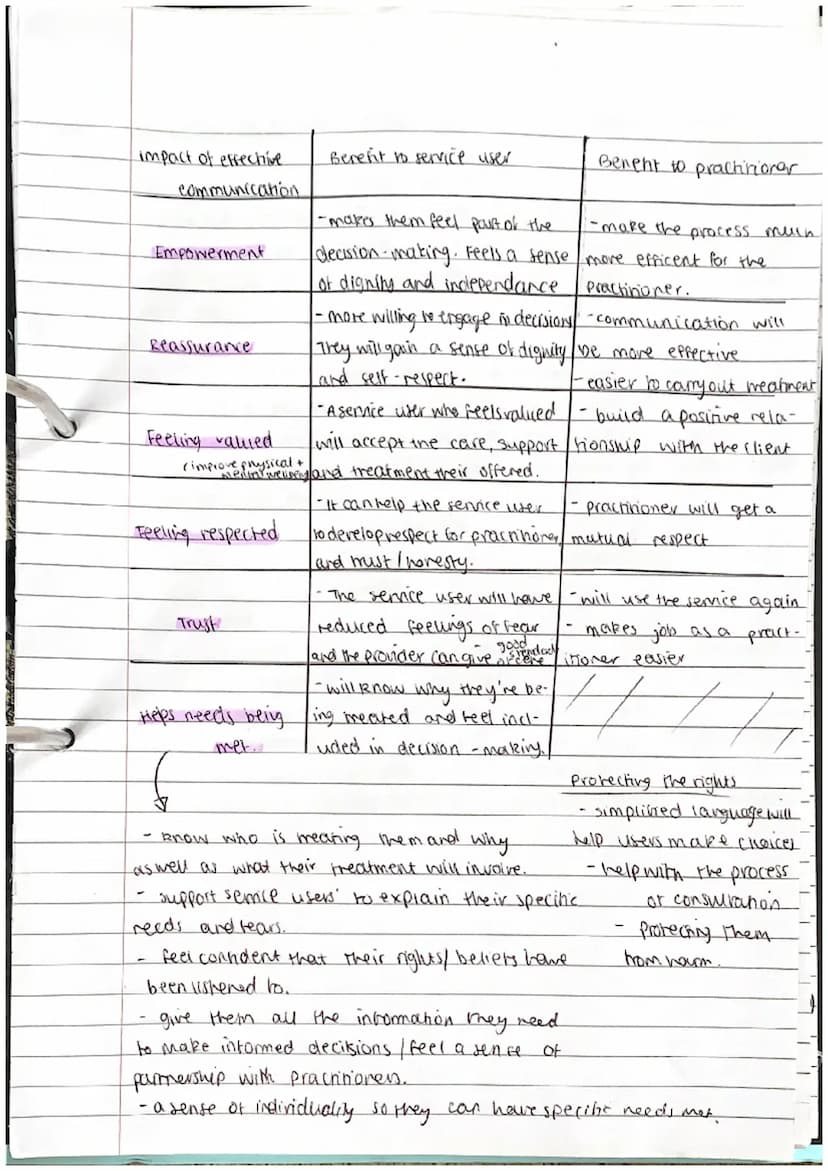 Impact of effective communication
Benefit to service user
Benefit to practitioner
Empowerment
- makes them feel part of the
decision-making. Feels a sense
of dignity and independance
- make the process much
more efficent for the
practitioner.
Reassurance
- more willing to engage in decisions
They will gain a sense of dignity
and self-respect.
- communication will
be more effective
- easier to carry out treatment
Feeling valued
(improve physical +
mental wellbeing
- A service user who feels valued
will accept the care, support
and treatment their offered.
- build a positive rela-
tionship with the client
Feeling respected
- It can help the service user
to develop respect for practitioner,
and trust/honesty.
- practitioner will get a
mutual respect
Trust
- The service user will have
reduced feelings of fear
and the provider can give good standard of care
- will use the service again
- makes job as a pract-
itioner easier
Helps needs being
met.
- will know why they're be-
ing treated and feel incl-
uded in decision-making.
- know who is treating them and why
as well as what their treatment will involve.
- support service users' to explain their specific
needs and fears.
- feel confident that their rights/beliefs have
been listened to.
- give them all the information they need
to make informed decitsions/feel a sence of
partnership with practitioners.
- a sense of individuality so they can have specific needs met.
Protecting the rights
- simplified language will
help users make choices
- help with the process
of consultation
- Protecting them
from harm.